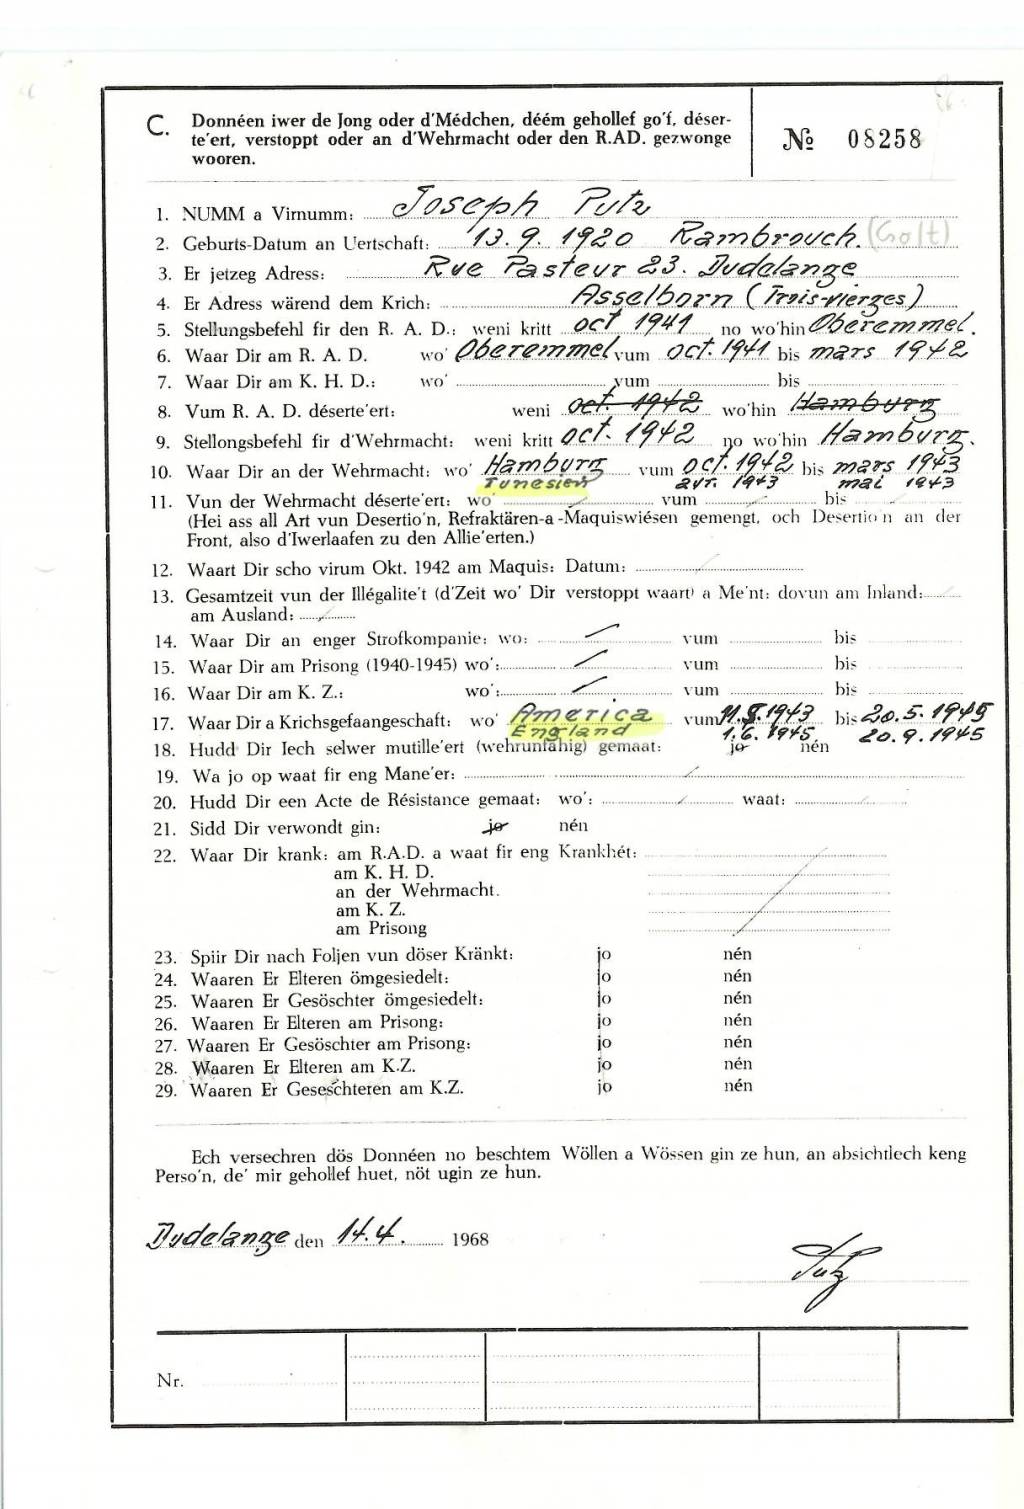 C. Donnéen iwer de Jong oder d'Médchen, déém gehollef go'f, déser-
te'ert, verstoppt oder an d'Wehrmacht oder den R.AD. gezwonge
wooren.
№ 08258
1. NUMM a Virnumm: Joseph Putz
2. Geburts-Datum an Uertschaft: 13.9.1920 Rambrouch. (Golt)
3. Er jetzeg Adress: Rue Pasteur 23. Dudelange
4. Er Adress wärend dem Krich: Asselborn (Trois-vierges)
5. Stellungsbefehl fir den R. A. D.: weni kritt oct 1941 no wo'hin Oberemmel.
6. Waar Dir am R. A. D. wo' Oberemmel vum oct. 1941 bis mars 1942
7. Waar Dir am K. H. D.: wo' vum bis
8. Vum R. A. D. déserte'ert: weni oct. 1942 wo'hin Hamburg
9. Stellongsbefehl fir d'Wehrmacht: weni kritt oct. 1942 no wo'hin Hamburg.
10. Waar Dir an der Wehrmacht: wo' Hamburg vum oct. 1942 bis mars 1943
Tunesien avr. 1943 mai 1943
11. Vun der Wehrmacht déserte'ert: wo' vum bis
(Hei ass all Art vun Desertio'n, Refraktären-a-Maquiswiésen gemengt, och Desertio'n an der
Front, also d'Iwerlaafen zu den Allie'erten.)
12. Waart Dir scho virum Okt. 1942 am Maquis: Datum:
13. Gesamtzeit vun der Illégalite't (d'Zeit wo' Dir verstoppt waart) a Me'nt: dovun am Inland:
am Ausland:
14. Waar Dir an enger Strofkompanie: wo: vum bis
15. Waar Dir am Prisong (1940-1945) wo': vum bis
16. Waar Dir am K. Z.: wo': vum bis
17. Waar Dir a Krichsgefaangeschaft: wo' America vum 11.5.1943 bis 20.5.1945
England 1.6.1945 20.9.1945
18. Hudd Dir Iech selwer mutille'ert (wehrunfähig) gemaat: jo nén
19. Wa jo op waat fir eng Mane'er:
20. Hudd Dir een Acte de Résistance gemaat: wo': waat:
21. Sidd Dir verwondt gin: jo nén
22. Waar Dir krank: am R.A.D. a waat fir eng Krankhét:
am K. H. D.
an der Wehrmacht.
am K. Z.
am Prisong
23. Spiir Dir nach Foljen vun döser Kränkt: jo nén
24. Waaren Er Elteren ömgesiedelt: jo nén
25. Waaren Er Gesöschter ömgesiedelt: jo nén
26. Waaren Er Elteren am Prisong: jo nén
27. Waaren Er Gesöschter am Prisong: jo nén
28. Waaren Er Elteren am K.Z. jo nén
29. Waaren Er Geseschteren am K.Z. jo nén
Ech versechren dös Donnéen no beschtem Wöllen a Wössen gin ze hun, an absichtlech keng
Perso'n, de' mir gehollef huet, nöt ugin ze hun.
Dudelange den 14.4. 1968
Putz
Nr.